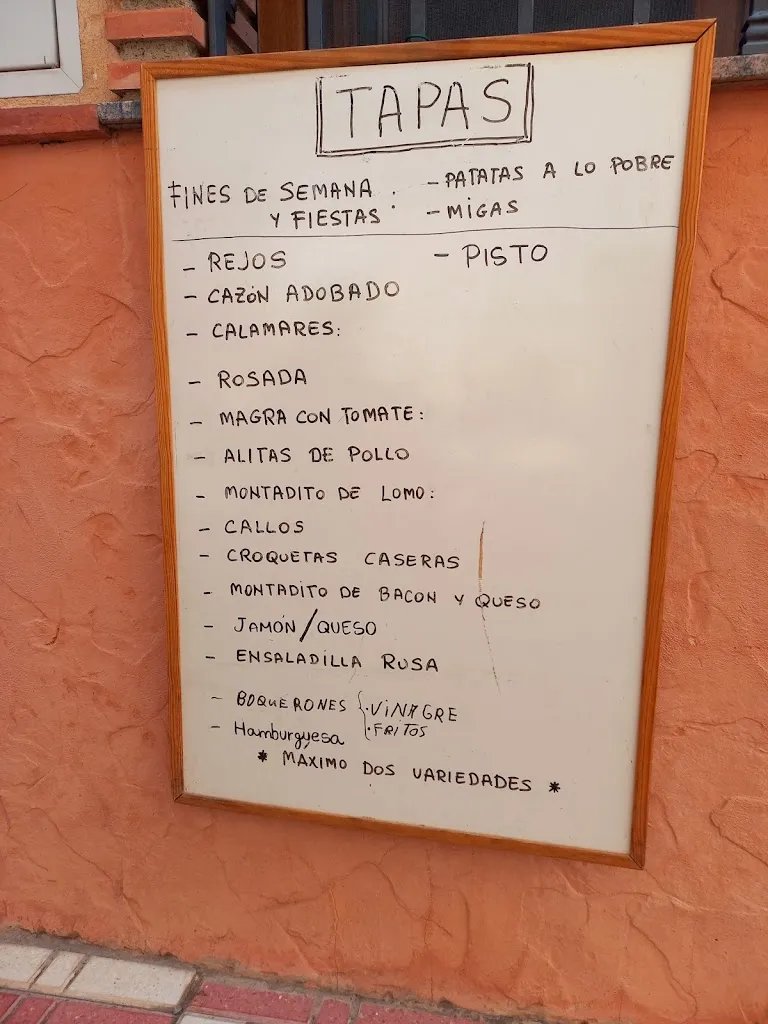 TAPAS
FINES DE SEMANA Y FIESTAS : - PATATAS A LO POBRE
- MIGAS
- REJOS - PISTO
- CAZÓN ADOBADO
- CALAMARES:
- ROSADA
- MAGRA CON TOMATE:
- ALITAS DE POLLO
- MONTADITO DE LOMO:
- CALLOS
- CROQUETAS CASERAS
- MONTADITO DE BACON Y QUESO
- JAMÓN/QUESO
- ENSALADILLA RUSA
- BOQUERONES { · VINAGRE
· FRITOS
- Hamburguesa
* MÁXIMO DOS VARIEDADES *